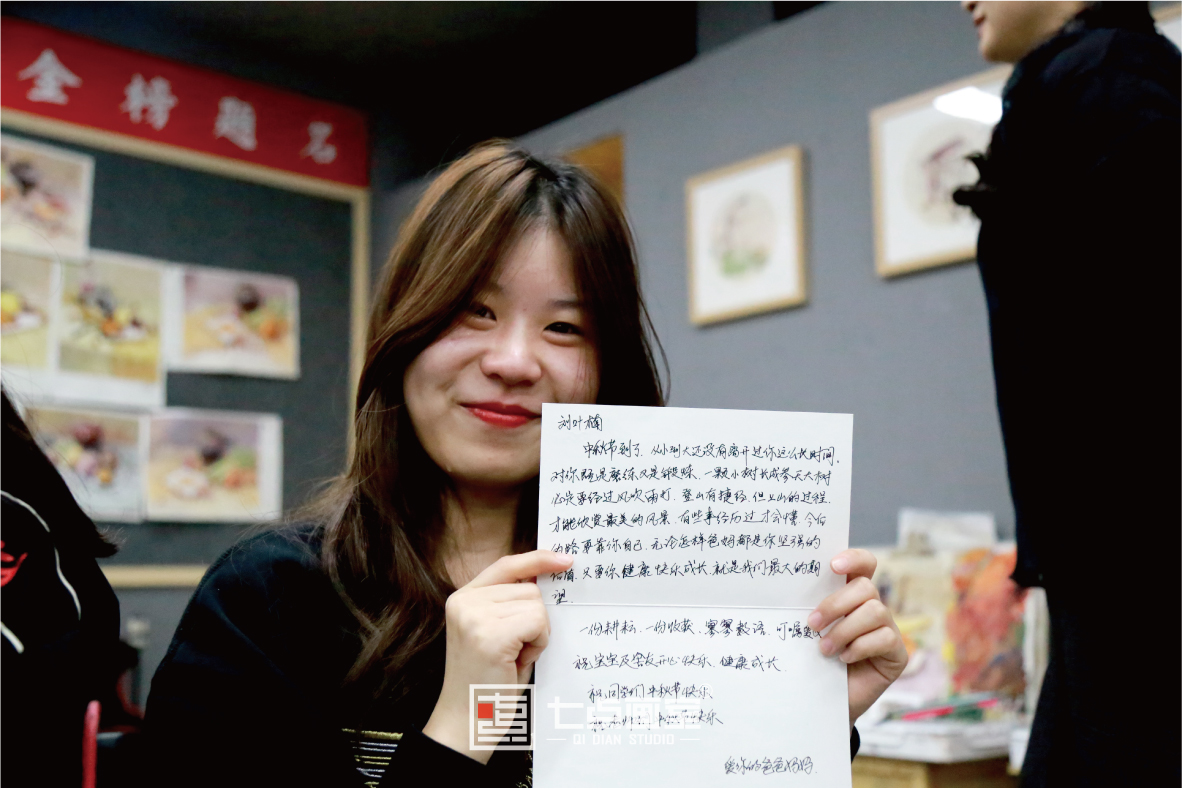 金榜题名
刘叶楠
中秋节到了，从小到大还没有离开过你这么长时间，
对你既是磨练又是锻炼，一颗小树长成参天大树
必定要经过风吹雨打，登山有捷径，但上山的过程，
才能欣赏最美的风景，有些事经历过才会懂，今后
的路要靠你自己，无论怎样爸妈都是你坚强的
后盾，只要你健康快乐成长，就是我们最大的期
望。
一份耕耘，一份收获，寥寥数语，叮嘱
祝宝宝及室友开心快乐，健康成长
祝同学们中秋节快乐
快乐
爱你的爸爸妈妈
七点画室
QI DIAN STUDIO